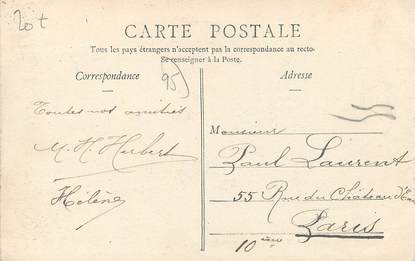 20t
CARTE POSTALE
Tous les pays étrangers n'acceptent pas la correspondance au recto-
Se renseigner à la Poste.
Correspondance
95
Adresse
Toutes nos amitiés
M. H. Hubert
Hélène
Monsieur
Paul Laurent
55 Rue du Château
Paris
10ème